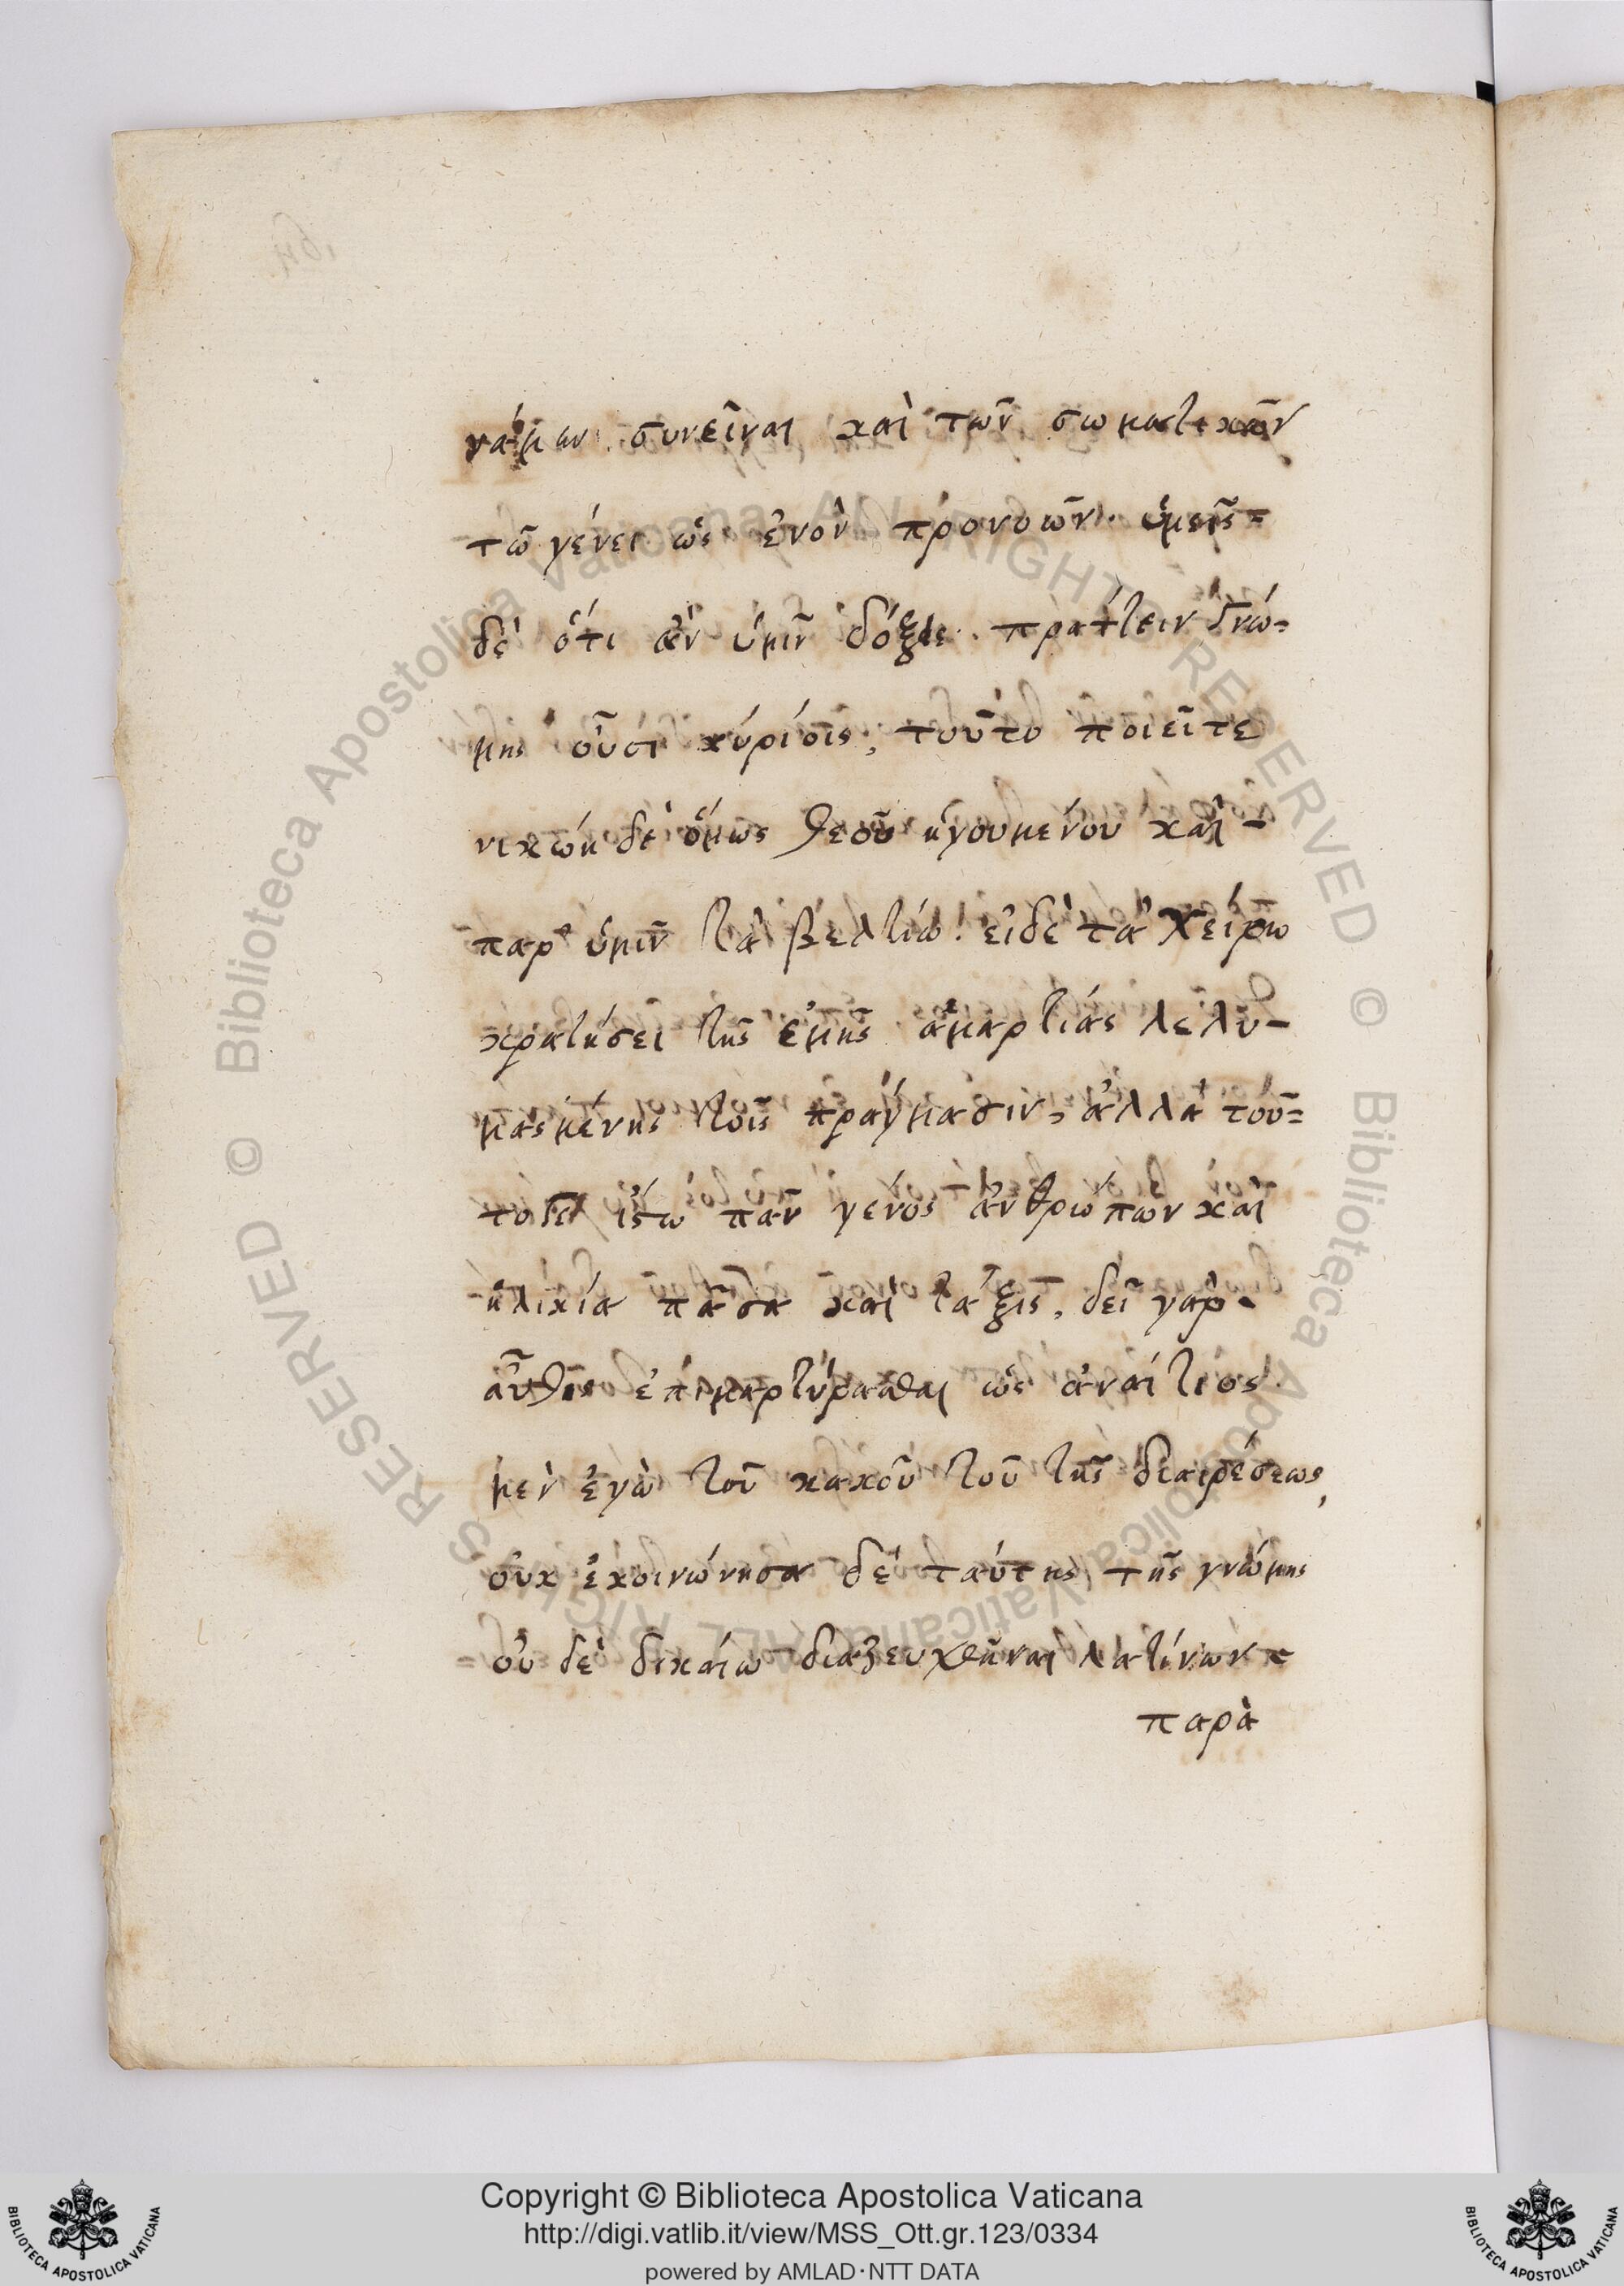 νάμων συνεῖναι καὶ τῶν σωματικῶν
τῷ γένει ὡς ἐνὸν προνοιῶν. ὑμεῖς=
δὲ ὅτι ἂν ὑμῖν δόξῃ πράττειν γνώ=
μης οὖσι κύριοις, τοῦτο ποιεῖτε
νικώη δὲ ὅμως θεοῦ ἡγουμένου καὶ -
παρ' ὑμῖν τὰ βελτίω. εἰδὲ τὰ χείρω
κρατήσει τῆς ἐμῆς ἁμαρτίας λελυ-
μασμένης τοῖς πράγμασιν, ἀλλὰ τοῦ=
το γε ἴστω πᾶν γένος ἀνθρώπων καὶ
ἡλικία πᾶσα καὶ τάξις, δεῖ γὰρ -
αὖθις ἐπιμαρτύρασθαι ὡς ἀναίτιος
μὲν ἐγὼ τοῦ κακοῦ τοῦ τῆς διαιρέσεως,
οὐκ ἐκοινώνησα δὲ ταύτης τῆς γνώμης
οὐ δὲ δικαίω διαζευχθῆναι λατίνων -
παρὰ
Copyright © Biblioteca Apostolica Vaticana
http://digi.vatlib.it/view/MSS_Ott.gr.123/0334
powered by AMLAD·NTT DATA